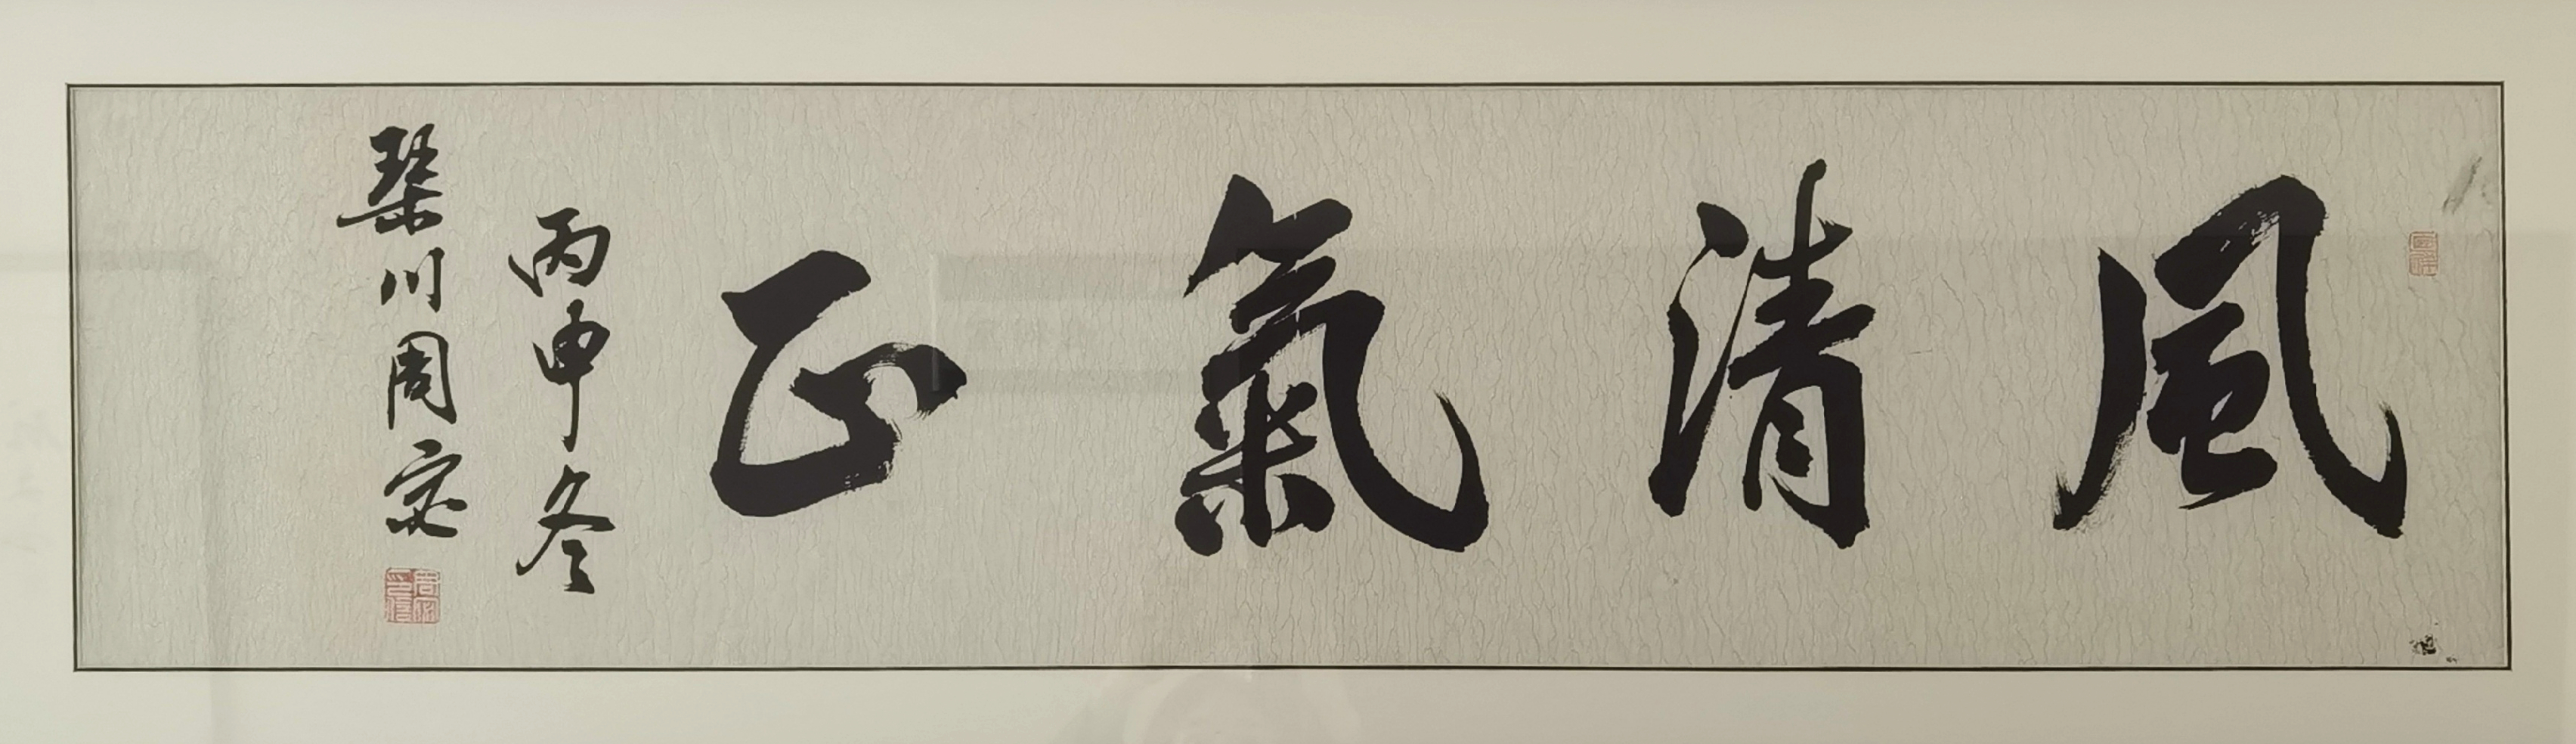 風清氣正
丙申冬
琹川周